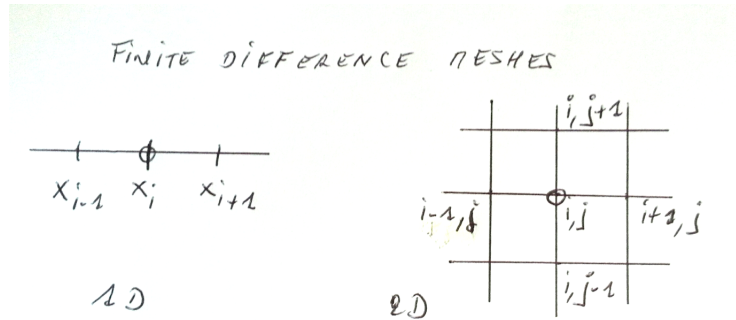 FINITE DIFFERENCE MESHES
i, j+1
x i-1 x i x i+1
i-1, j i, j i+1, j
i, j-1
1D
2D